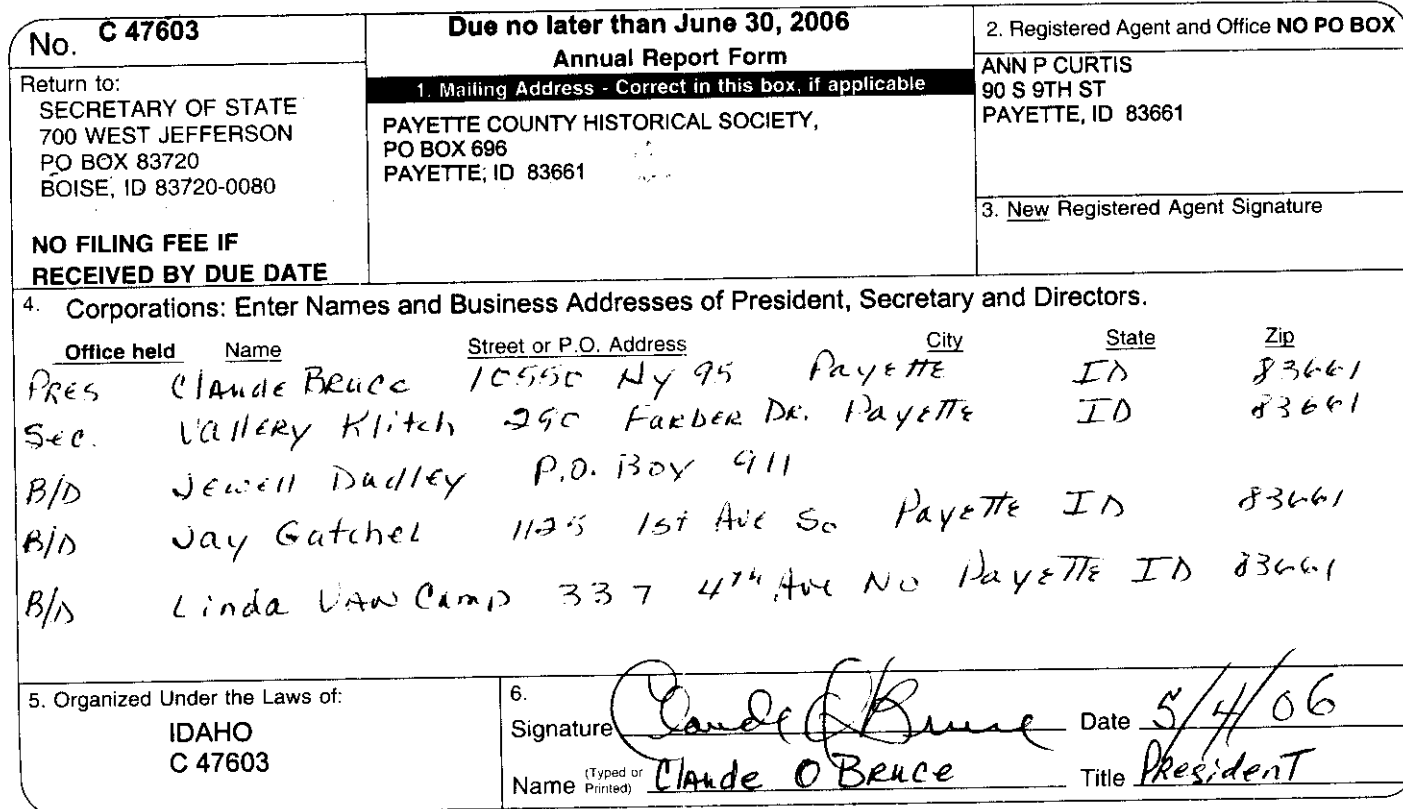 No. C 47603
Return to:
SECRETARY OF STATE
700 WEST JEFFERSON
PO BOX 83720
BOISE, ID 83720-0080
NO FILING FEE IF
RECEIVED BY DUE DATE
Due no later than June 30, 2006
Annual Report Form
1. Mailing Address - Correct in this box, if applicable
PAYETTE COUNTY HISTORICAL SOCIETY,
PO BOX 696
PAYETTE, ID 83661
2. Registered Agent and Office NO PO BOX
ANN P CURTIS
90 S 9TH ST
PAYETTE, ID 83661
3. New Registered Agent Signature
4. Corporations: Enter Names and Business Addresses of President, Secretary and Directors.
Office held Name Street or P.O. Address City State Zip
Pres Claude Bruce 10550 Hy 95 Payette ID 83661
Sec. Vallery Klitch 290 Farber Dr. Payette ID 83661
B/D Jewell Dudley P.O. Box 911
B/D Jay Gatchel 1125 1st Ave So Payette ID 83661
B/D Linda Van Camp 337 4th Ave No Payette ID 83661
5. Organized Under the Laws of:
IDAHO
C 47603
6.
Signature Claude O Bruce Date 5/4/06
Name (Typed or Printed) Claude O Bruce Title President